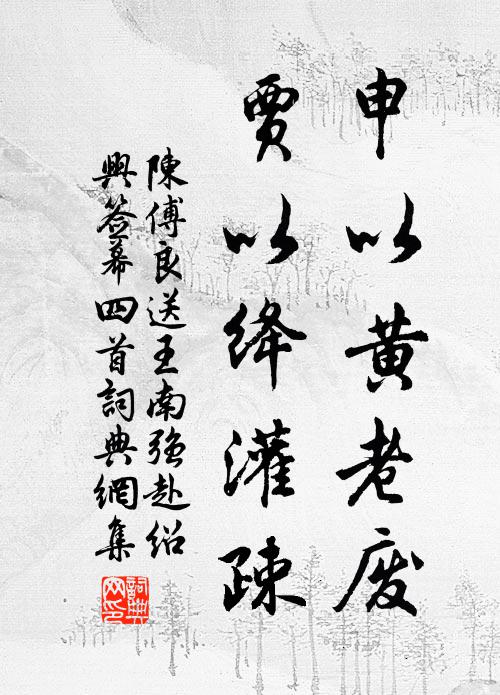 申以黄老废
贾以绛灌疎
陳傅良送王南強赴绍
興簽幕四首詞典網集
詞典
网印